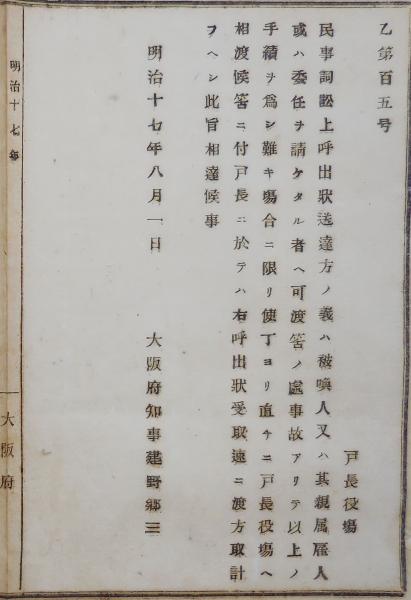 乙第百五号
戸長役場
民事詞訟上呼出狀送達方ノ義ハ被喚人又ハ其親属雇人
或ハ委任ヲ請ケタル者ヘ可渡筈ノ處事故アリテ以上ノ
手續ヲ爲シ難キ塲合ニ限リ使丁ヨリ直チニ戸長役塲ヘ
相渡候筈ニ付戸長ニ於テハ右呼出狀受取速ニ渡方取計
フヘシ此旨相達候事
明治十七年八月一日
大阪府知事建野郷三
明治十七年
大阪府